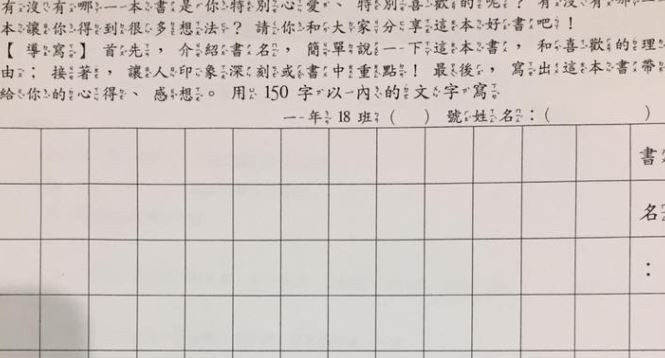 有沒有哪一本書是你特別心愛、特別喜歡的呢？有沒有哪一
本讓你得到很多想法？請你和大家分享這本好書吧！
【導寫】首先，介紹書名，簡單說一下這本書，和喜歡的理
由；接著，讓人印象深刻或書中重點！最後，寫出這本書帶
給你的心得、感想。用 150 字以內的文字寫
一年 18 班（ ）號姓名：（ ）
書名：